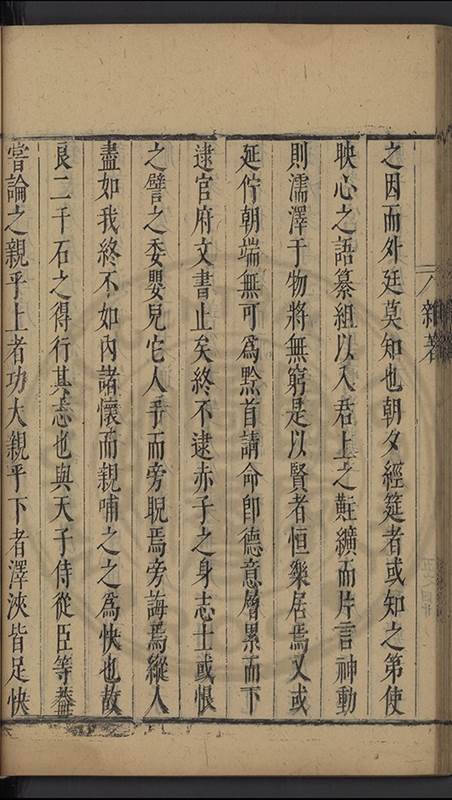 之因而外廷莫知也朝夕經筵者或知之第使
映心之語纂組以入君上之黈纊而片言神動
則濡澤于物將無窮是以賢者恒樂居焉又或
延佇朝端無可為黔首請命卽德意層累而下
逮官府文書止矣終不逮赤子之身志士或恨
之譬之委嬰兒它人乎而旁睨焉旁誨焉縱人
盡如我終不如內諸懷而親哺之之為快也故
良二千石之得行其志也與天子侍從臣等
嘗論之親乎上者功大親乎下者澤浹皆足快
雜著